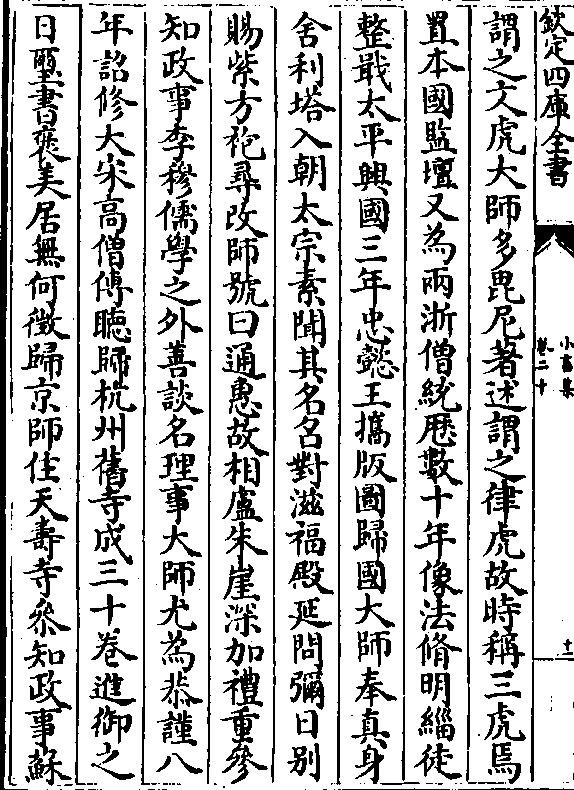 欽定四庫全書
小畜集
卷二十
十一
謂之文虎大師多毘尼著述謂之律虎故時稱三虎焉
置本國監壇又為兩浙僧統歷數十年像法脩明緇徒
整戢太平興國三年忠懿王攜版圖歸國大師奉真身
舍利塔入朝太宗素聞其名召對滋福殿延問彌日別
賜紫方袍尋改師號曰通惠故相盧朱崖深加禮重參
知政事李穆儒學之外善談名理事大師尤為恭謹八
年詔修大宋高僧傳聽歸杭州舊寺成三十卷進御之
日璽書褒美居無何徵歸京師住天壽寺叅知政事蘇